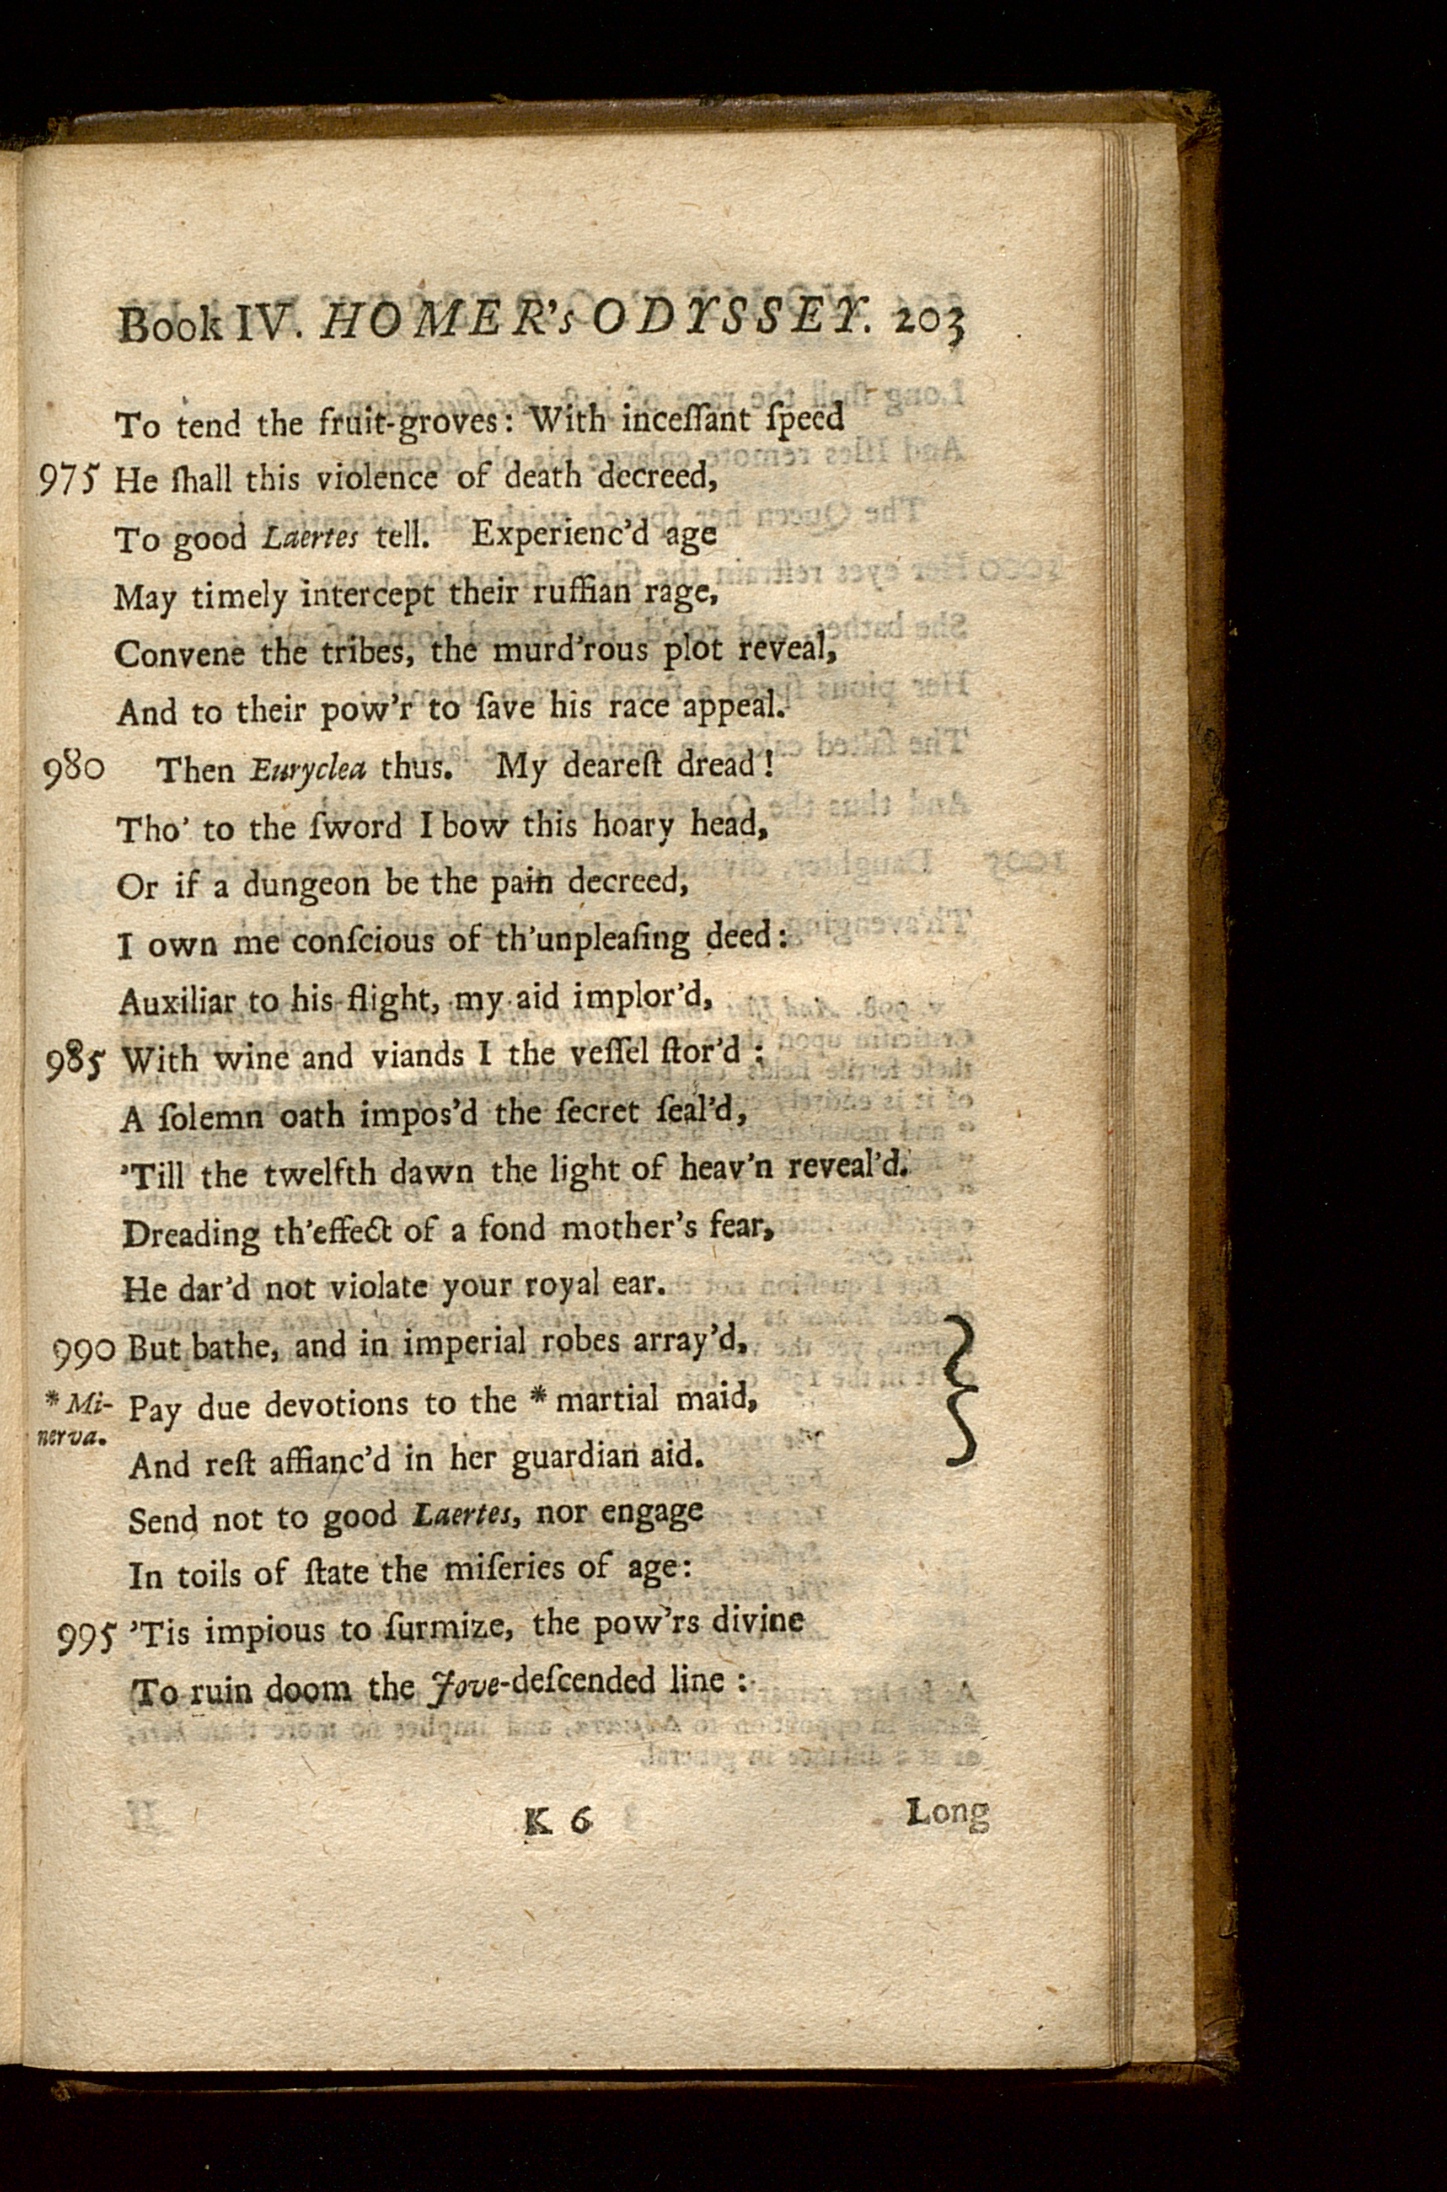 Book IV. HOMER's ODYSSEY. 203
To tend the fruit-groves: With inceſſant ſpeed
975 He ſhall this violence of death decreed,
To good Laertes tell. Experienc'd age
May timely intercept their ruffian rage,
Convene the tribes, the murd'rous plot reveal,
And to their pow'r to ſave his race appeal.
980 Then Euryclea thus. My deareſt dread!
Tho' to the ſword I bow this hoary head,
Or if a dungeon be the pain decreed,
I own me conſcious of th'unpleaſing deed:
Auxiliar to his flight, my aid implor'd,
985 With wine and viands I the veſſel ſtor'd:
A ſolemn oath impos'd the ſecret ſeal'd,
'Till the twelfth dawn the light of heav'n reveal'd.
Dreading th'effect of a fond mother's fear,
He dar'd not violate your royal ear.
990 But bathe, and in imperial robes array'd,
* Mi- Pay due devotions to the * martial maid,
nerva.
And reſt affianc'd in her guardian aid.
Send not to good Laertes, nor engage
In toils of ſtate the miſeries of age:
995 'Tis impious to ſurmize, the pow'rs divine
To ruin doom the Jove-deſcended line:
K 6 Long